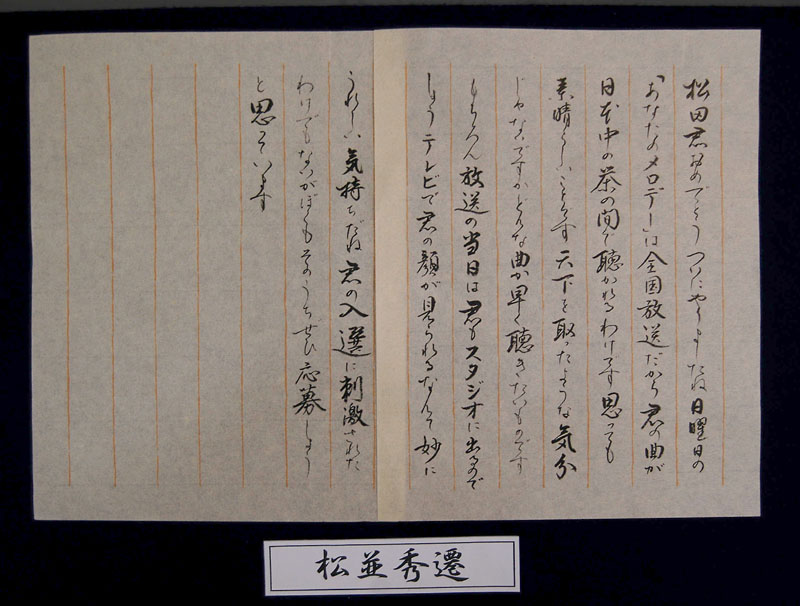 松田君おめでとうついにやりましたね日曜日の
「あなたのメロデー」は全国放送だから君の曲が
日本中の茶の間で聴かれるわけです思っても
素晴らしいことです天下を取ったような気分
じゃないですかどんな曲か早く聴きたいものです
もちろん放送の当日は君もスタジオに出るので
しょうテレビで君の顔が見られるなんて妙に
うれしい気持ちだね君の入選に刺激された
わけでもないがぼくもそのうちぜひ応募しよう
と思っています
松並秀遷